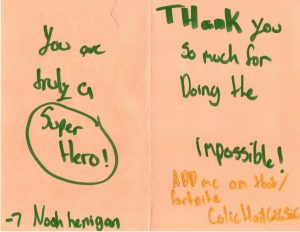 You are
truly a
Super
Hero!
-7 Noah henigan
THank you
so much for
Doing the
impossible!
ADD me on
fortnite